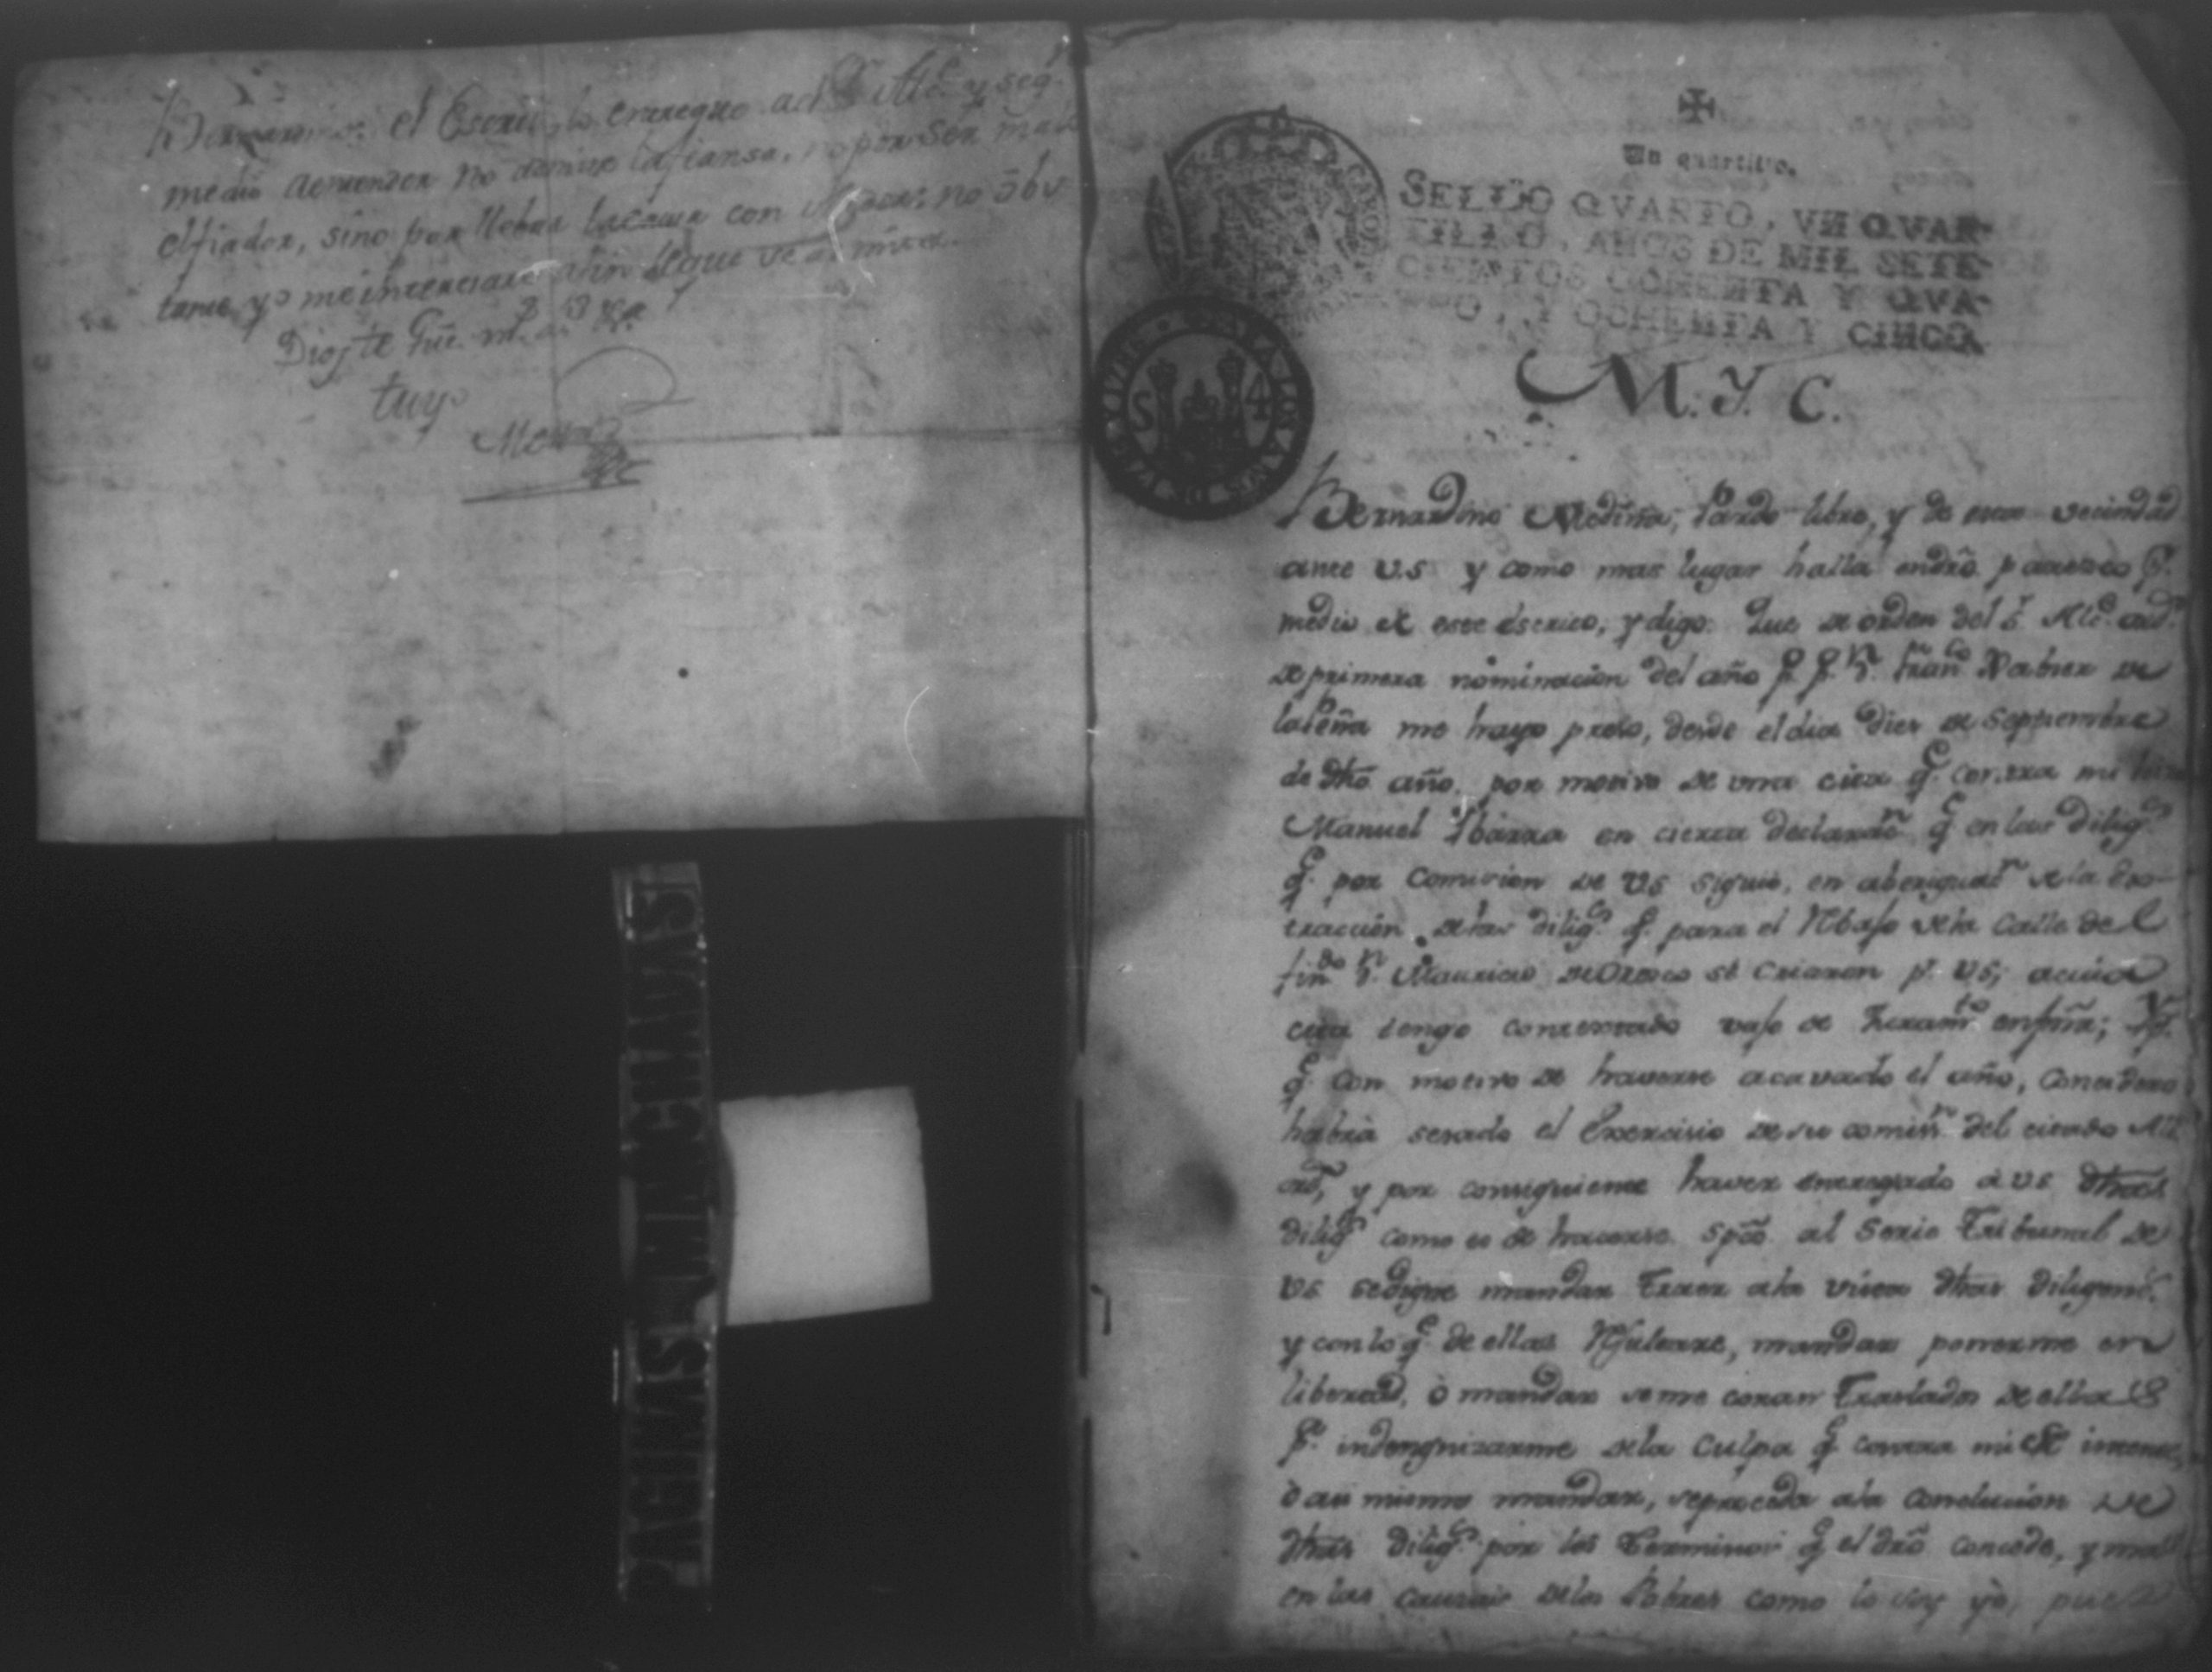 el Escrito entregue al S. Alc. y seg.
medio aentender no admite la fiansa, no por ser malo
el fiador, sino por llebar la causa con no obs
tante, yo me interesare a fin de que se admita.
Dios te gue. m. a.
tuyo
PAGINAS MUTCHAVAS
✠
Un quartillo.
SELLO QVARTO, VN QVAR-
TILLO, AÑOS DE MIL SETE-
CIENTOS OCHENTA Y QVA-
TRO, Y OCHENTA Y CINCO
S 4
M. Y. C.
Bernardino Medina, Pardo libre, y de esta vecindad
ante V.S. y como mas lugar halla en dro. paresco P.
medio de este escrito, y digo: Que de orden del S.r Alc.e ord.o
de primera nominacion del año p. p. D.n Fran.co Xabier de
la Peña me hayo preso, desde el dia dies de Septiembre
de dho año, por motivo de una cita q.e contra mi hizo
Manuel Ibarra en cierta declaraz.n q.e en las dilig.s
q.e por Comision de VS siguio, en aberiguaz.n de la ex-
traccion de las dilig.s q.e para el Rebajo de la Calle del
fin.do D.n Mauricio de Orosco se criaron p.r VS; a cuia
cita tengo contestado vajo de Juram.to en forma; Y p.r
q.e con motivo de haverse acavado el año, concidero
habrá sesado el Exercisio de su comis.n del citado Alc.
ord, y por consiguiente haver entregado a VS dhas
dilig.s como es de haverse. Sp.co al Serio Tribunal de
VS se digne mandar traer a la vista dhas diligenc.s
y con lo q.e de ellas resultare, mandar ponerme en
libertad, ò mandar se me corran Traslados de ellas
p.a indemgnizarme de la Culpa q.e contra mi se intenta,
ò asi mismo mandar, se proceda a la conclucion de
dhas dilig.s por los Terminos q.e el dro concede, y mas
en las causas de los Pobres como lo soy yo, pues